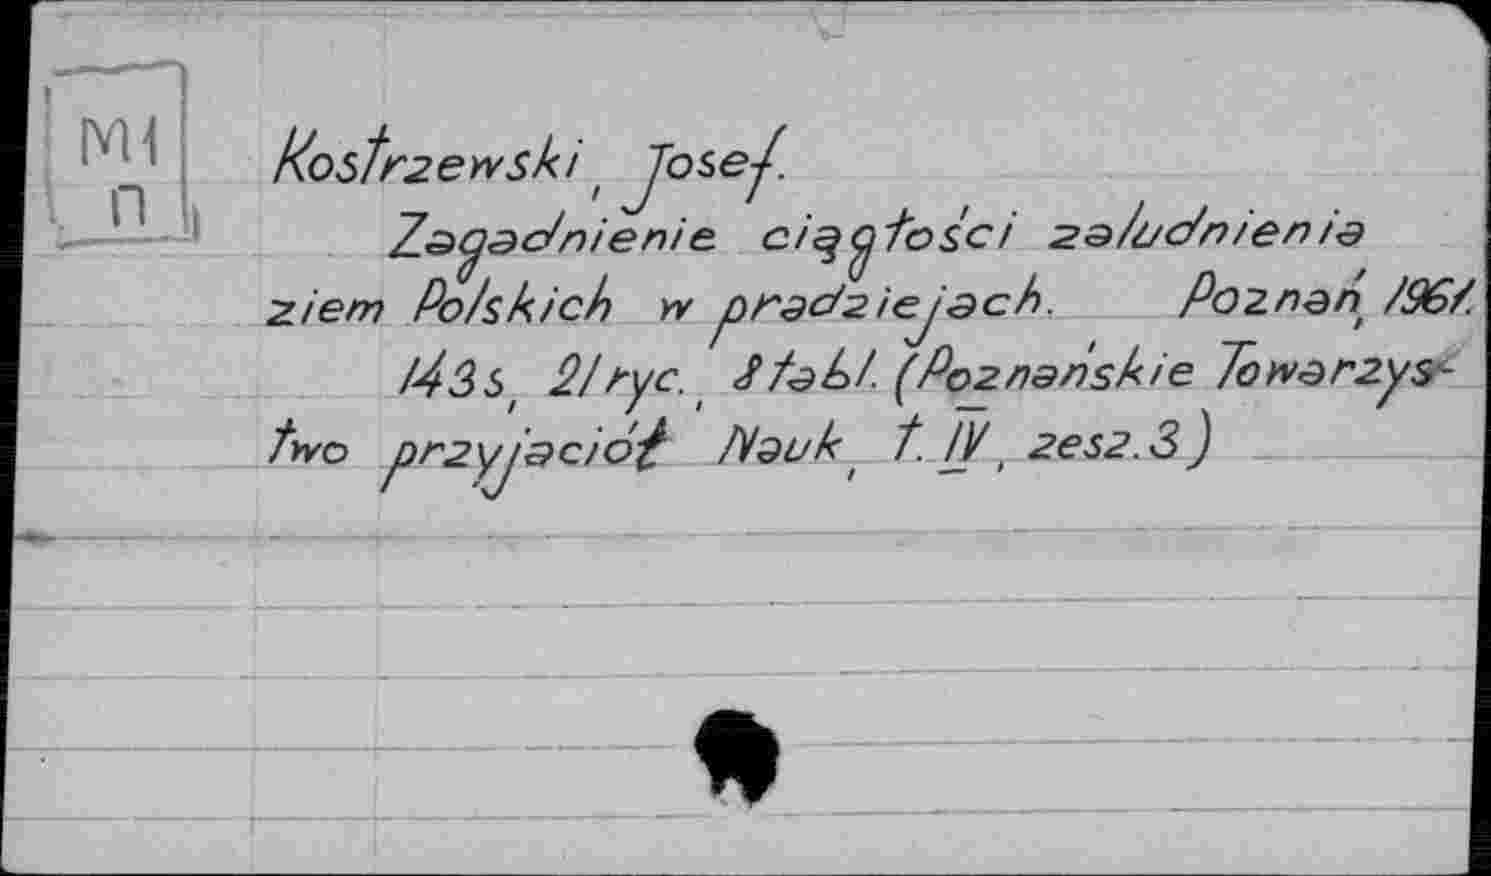 М1
П
Kostrzewski, Josef.
Zagadnienie ciągtości zaludnienia
ziem Polskich w pradziejach. Poznań, 1961.
143s, 21ryc., 8tabl. (Poznańskie Towarzys-
two przyjaciół Nauk, t. IV, zesz.3)